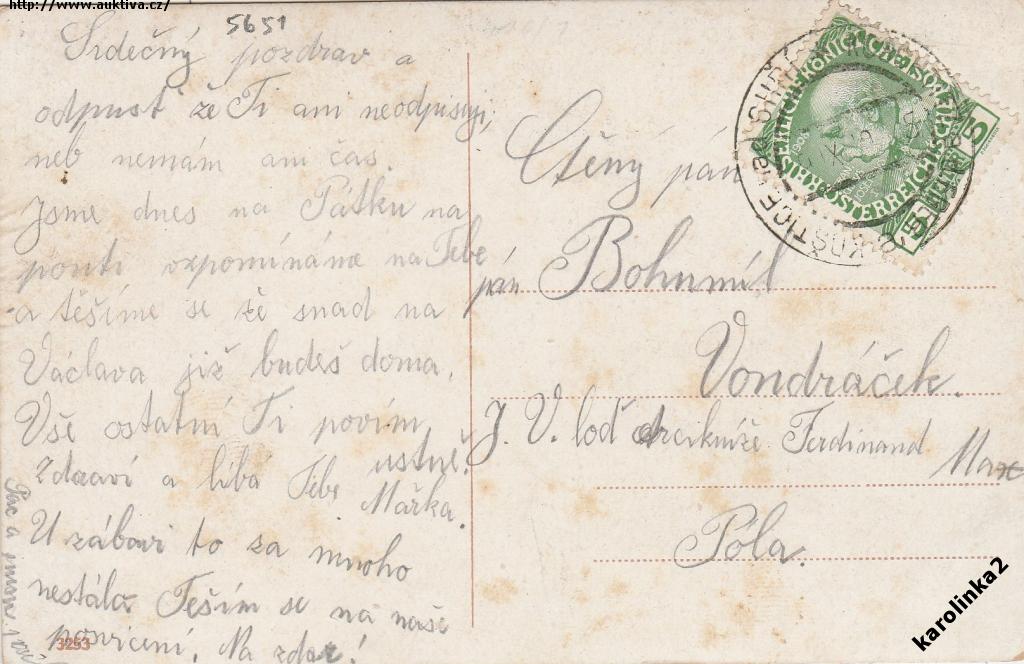 http://www.auktiva.cz/
5651
Srdečný pozdrav a
odpusť že Ti ani neodpisuji,
neb nemám ani čas.
Jsme dnes na Pátku na
pouti vzpomínáme na Tebe
a těšíme se že snad na
Václava již budeš doma.
Vše ostatní Ti povím
ustně.
Zdraví a líbá Tebe
Mařka.
U zábavi to za mnoho
nestálo. Těším se na naše
posvícení. Na zdar!
3253
Ctěný pán
pán Bohumil
Vondráček.
J. V. loď arcikníže Ferdinand
Max
Póla.
5 HELLER 5
KAISERLICH-KÖNIGLICHE ÖSTERREICHISCHE POST
karolinka2